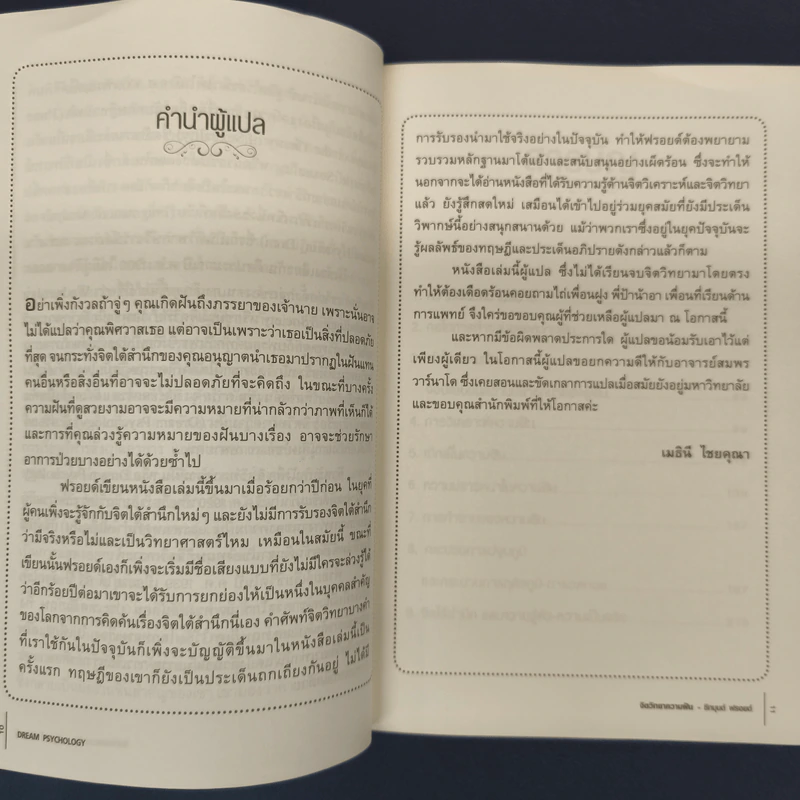 คำนำผู้แปล
อย่าเพิ่งกังวลถ้าจู่ๆ คุณเกิดฝันถึงภรรยาของเจ้านาย เพราะนั่นอาจ
ไม่ได้แปลว่าคุณพิศวาสเธอ แต่อาจเป็นเพราะว่าเธอเป็นสิ่งที่ปลอดภัย
ที่สุด จนกระทั่งจิตใต้สำนึกของคุณอนุญาตนำเธอมาปรากฏในฝันแทน
คนอื่นหรือสิ่งอื่นที่อาจจะไม่ปลอดภัยที่จะคิดถึง ในขณะที่บางครั้ง
ความฝันที่ดูสวยงามอาจจะมีความหมายที่น่ากลัวกว่าภาพที่เห็นก็ได้
และการที่คุณล่วงรู้ความหมายของฝันบางเรื่อง อาจจะช่วยรักษา
อาการป่วยบางอย่างได้ด้วยซ้ำไป
ฟรอยด์เขียนหนังสือเล่มนี้ขึ้นมาเมื่อร้อยกว่าปีก่อน ในยุคที่
ผู้คนเพิ่งจะรู้จักกับจิตใต้สำนึกใหม่ๆ และยังไม่มีการรับรองจิตใต้สำนึก
ว่ามีจริงหรือไม่และเป็นวิทยาศาสตร์ไหม เหมือนในสมัยนี้ ขณะที่
เขียนนั้นฟรอยด์เองก็เพิ่งจะเริ่มมีชื่อเสียงแบบที่ยังไม่มีใครจะล่วงรู้ได้
ว่าอีกร้อยปีต่อมาเขาจะได้รับการยกย่องให้เป็นหนึ่งในบุคคลสำคัญ
ของโลกจากการคิดค้นเรื่องจิตใต้สำนึกนี่เอง คำศัพท์จิตวิทยาบางคำ
ที่เราใช้กันในปัจจุบันก็เพิ่งจะบัญญัติขึ้นมาในหนังสือเล่มนี้เป็น
ครั้งแรก ทฤษฎีของเขาก็ยังเป็นประเด็นถกเถียงกันอยู่ ไม่ได้มี
DREAM PSYCHOLOGY
การรับรองนำมาใช้จริงอย่างในปัจจุบัน ทำให้ฟรอยด์ต้องพยายาม
รวบรวมหลักฐานมาโต้แย้งและสนับสนุนอย่างเผ็ดร้อน ซึ่งจะทำให้
นอกจากจะได้อ่านหนังสือที่ได้รับความรู้ด้านจิตวิเคราะห์และจิตวิทยา
แล้ว ยังรู้สึกสดใหม่ เสมือนได้เข้าไปอยู่ร่วมยุคสมัยที่ยังมีประเด็น
วิพากษ์นี้อย่างสนุกสนานด้วย แม้ว่าพวกเราซึ่งอยู่ในยุคปัจจุบันจะ
รู้ผลลัพธ์ของทฤษฎีและประเด็นอภิปรายดังกล่าวแล้วก็ตาม
หนังสือเล่มนี้ผู้แปล ซึ่งไม่ได้เรียนจบจิตวิทยามาโดยตรง
ทำให้ต้องเดือดร้อนคอยถามไถ่เพื่อนฝูง พี่ป้าน้าอา เพื่อนที่เรียนด้าน
การแพทย์ จึงใคร่ขอขอบคุณผู้ที่ช่วยเหลือผู้แปลมา ณ โอกาสนี้
และหากมีข้อผิดพลาดประการใด ผู้แปลขอน้อมรับเอาไว้แต่
เพียงผู้เดียว ในโอกาสนี้ผู้แปลขอยกความดีให้กับอาจารย์สมพร
วาร์นาโด ซึ่งเคยสอนและขัดเกลาการแปลเมื่อสมัยยังอยู่มหาวิทยาลัย
และขอบคุณสำนักพิมพ์ที่ให้โอกาสค่ะ
เมธินี ไชยคุณา
จิตวิทยาความฝัน - ซิกมุนด์ ฟรอยด์
11